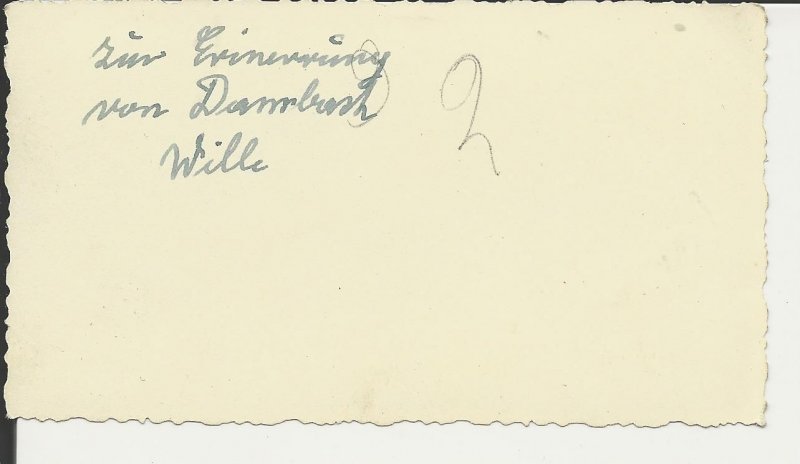 zur Erinerrung
von Dannbach
Wille
2